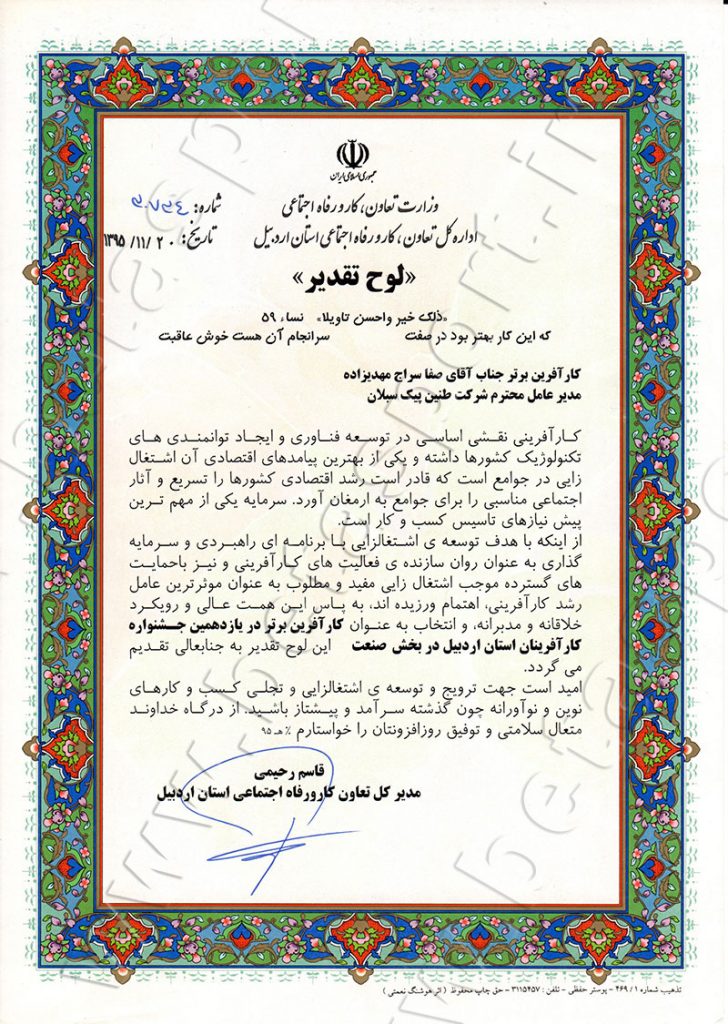 جمهوری اسلامی ایران
وزارت تعاون، کار و رفاه اجتماعی
شماره:
اداره کل تعاون، کار و رفاه اجتماعی استان اردبیل
تاریخ: ۱۳۹۵/۱۱/۲۰
«لوح تقدیر»
«ذلک خیر واحسن تاویلا» نساء ۵۹
که این کار بهتر بود در صفت سرانجام آن هست خوش عاقبت
کارآفرین برتر جناب آقای صفا سراج مهدیزاده
مدیر عامل محترم شرکت طنین پیک سبلان
کارآفرینی نقشی اساسی در توسعه فناوری و ایجاد توانمندی های
تکنولوژیک کشورها داشته و یکی از بهترین پیامدهای اقتصادی آن اشتغال
زایی در جوامع است که قادر است رشد اقتصادی کشورها را تسریع و آثار
اجتماعی مناسبی را برای جوامع به ارمغان آورد. سرمایه یکی از مهم ترین
پیش نیازهای تاسیس کسب و کار است.
از اینکه با هدف توسعه ی اشتغالزایی با برنامه ای راهبردی و سرمایه
گذاری به عنوان روان سازنده ی فعالیت های کارآفرینی و نیز باحمایت
های گسترده موجب اشتغال زایی مفید و مطلوب به عنوان موثرترین عامل
رشد کارآفرینی، اهتمام ورزیده اند، به پاس این همت عالی و رویکرد
خلاقانه و مدبرانه، و انتخاب به عنوان کارآفرین برتر در یازدهمین جشنواره
کارآفرینان استان اردبیل در بخش صنعت این لوح تقدیر به جنابعالی تقدیم
می گردد.
امید است جهت ترویج و توسعه ی اشتغالزایی و تجلی کسب و کارهای
نوین و نوآورانه چون گذشته سرآمد و پیشتاز باشید. از درگاه خداوند
متعال سلامتی و توفیق روزافزونتان را خواستارم
قاسم رحیمی
مدیر کل تعاون کارورفاه اجتماعی استان اردبیل
تذهیب شماره ۱ / ۴۶۹ - پوستر حفظی - تلفن : ۳۱۱۵۴۵۷ - حق چاپ محفوظ ( اثر هوشنگ نعمتی )